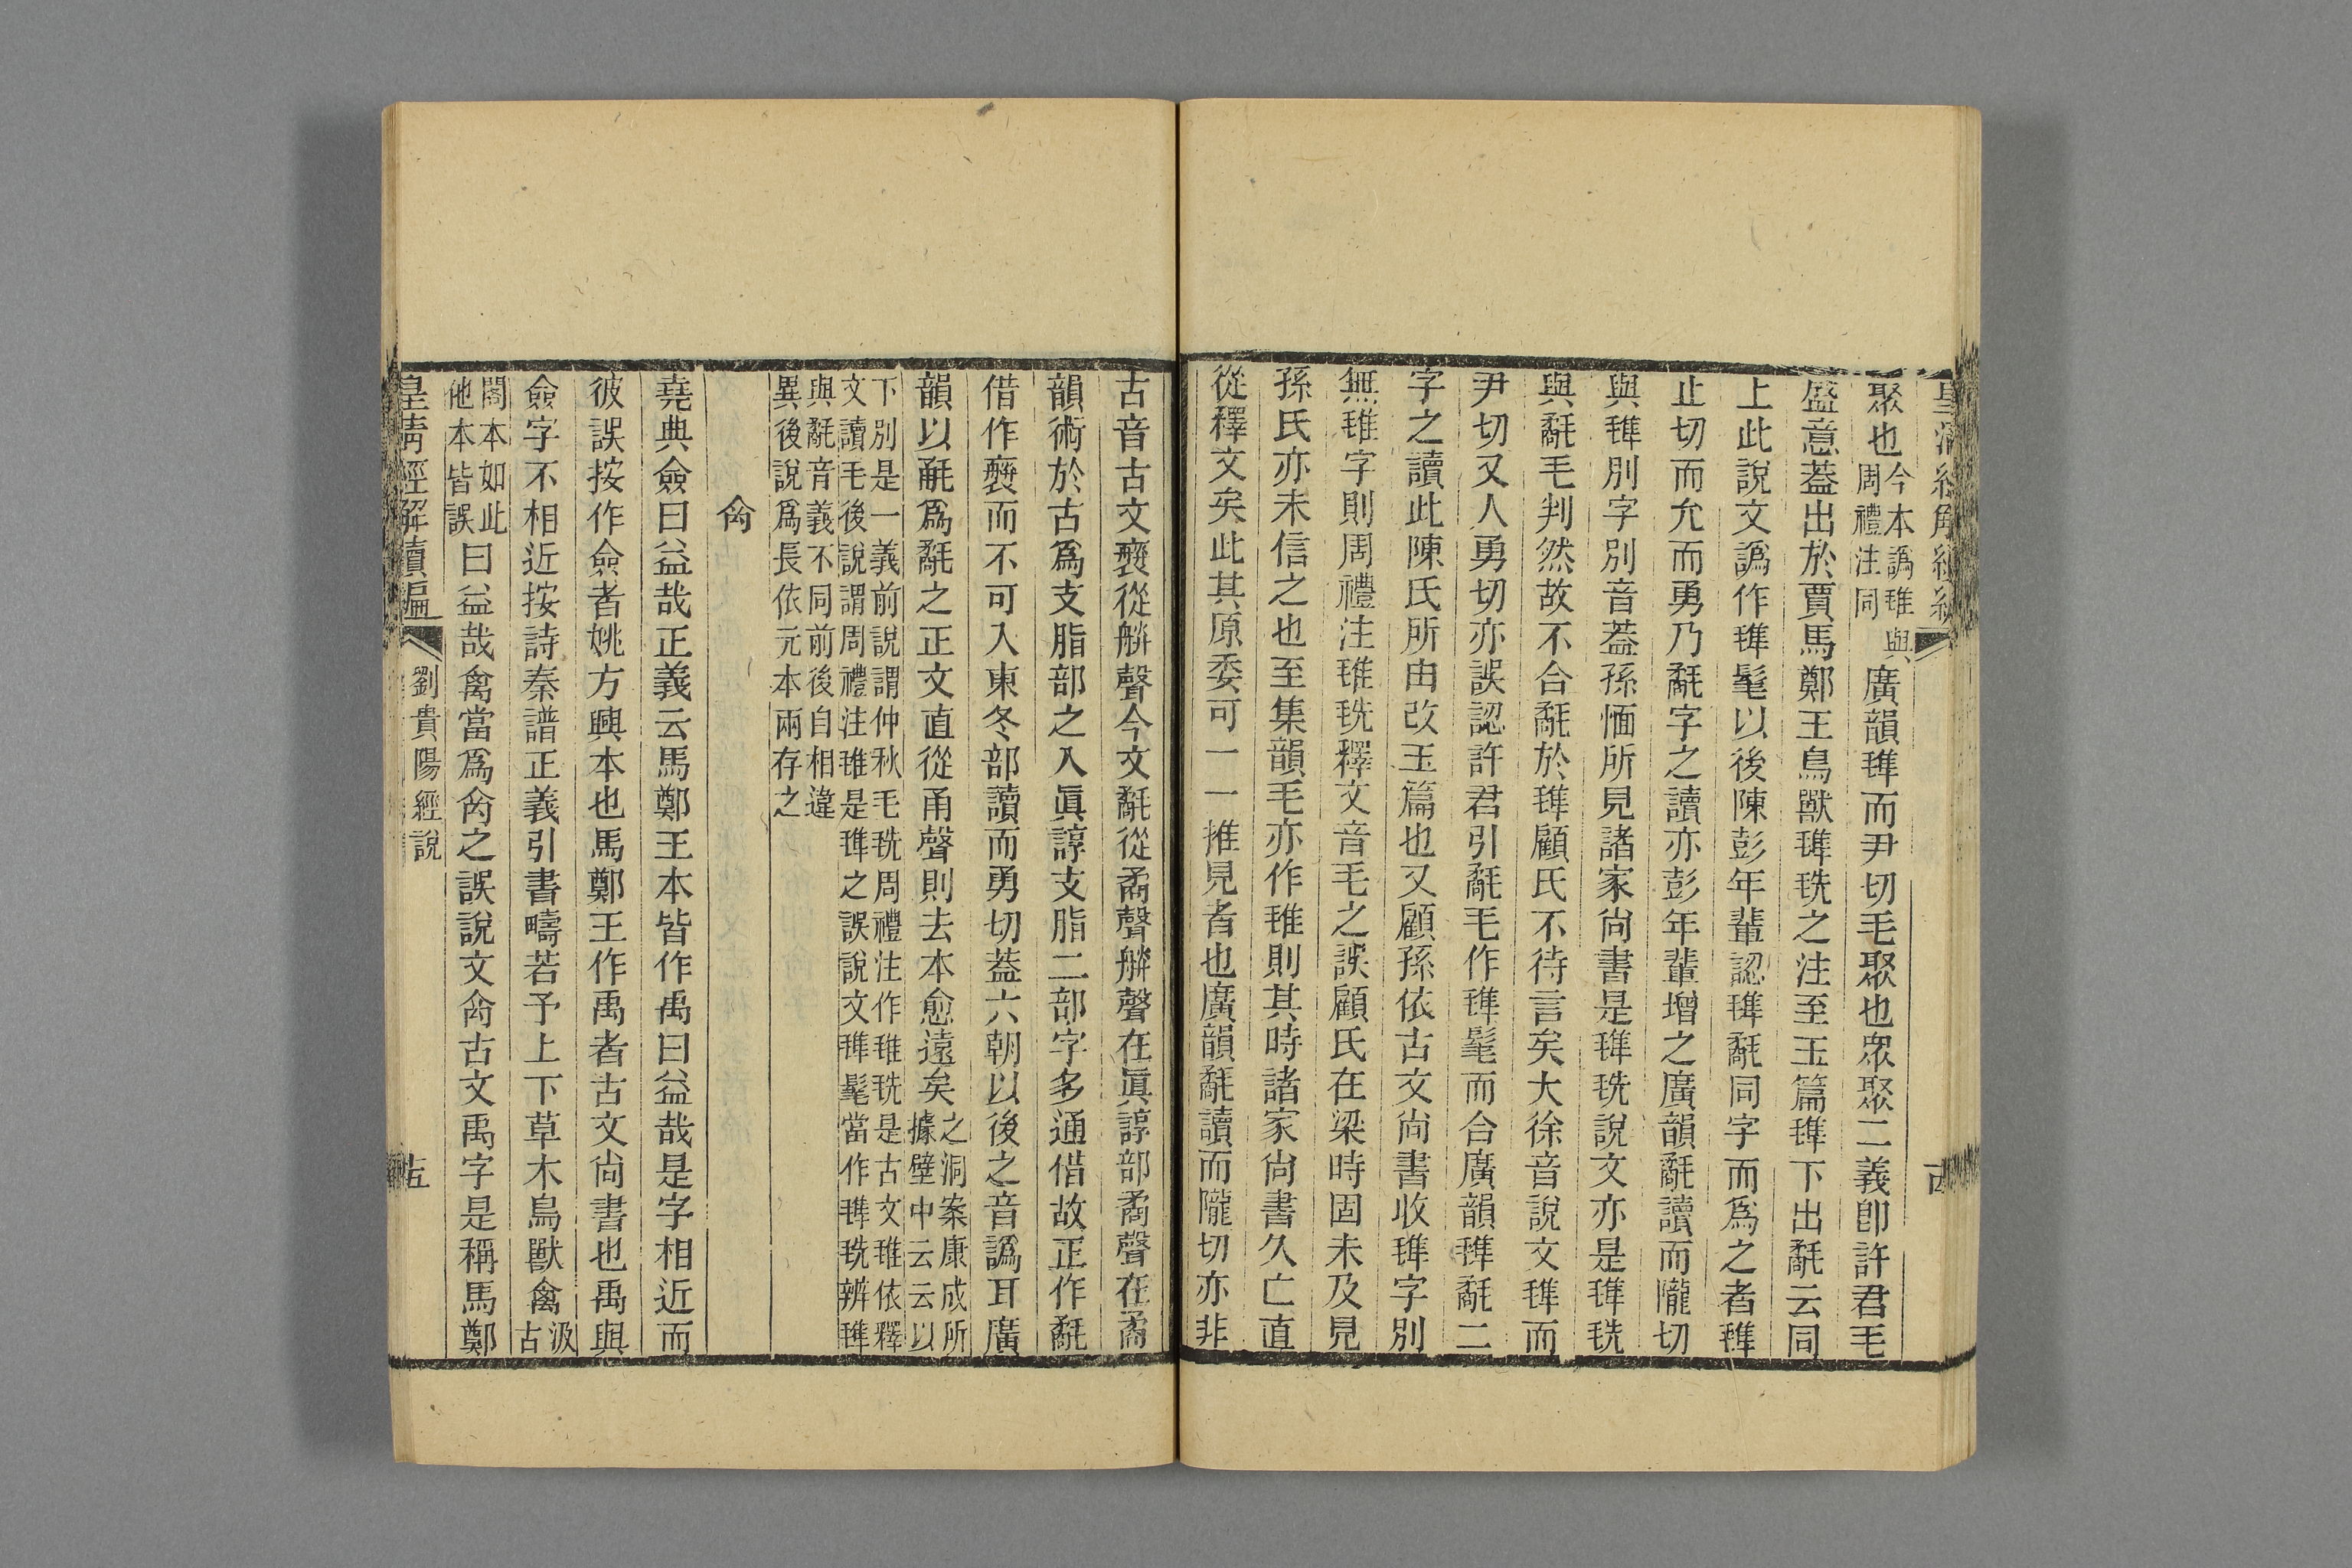 聚也今本譌𣬛與周禮注同廣韻𣯍而尹切毛聚也眾聚二義卽許君毛
盛意葢出於賈馬鄭王鳥獸𣯍毨之注至玉篇𣯍下出氄云同
上此說文譌作𣯍髦以後陳彭年輩認𣯍氄同字而爲之者𣯍
止切而允而勇乃氄字之讀亦彭年輩增之廣韻氄讀而隴切
與𣯍別字別音葢孫愐所見諸家尙書是𣯍毨說文亦是𣯍毨
與氄毛判然故不合氄於𣯍顧氏不待言矣大徐音說文𣯍而
尹切又人勇切亦誤認許君引氄毛作𣯍髦而合廣韻𣯍氄二
字之讀此陳氏所由改玉篇也又顧孫依古文尙書收𣯍字別
無𣬛字則周禮注𣬛毨釋文音毛之誤顧氏在梁時固未及見
孫氏亦未信之也至集韻毛亦作𣬛則其時諸家尙書久亡直
從釋文矣此其原委可一一推見者也廣韻氄讀而隴切亦非
古音古文𣮂從𦨖聲今文氄從矞聲𦨖聲在眞諄部矞聲在矞
韻術於古爲支脂部之入眞諄支脂二部字多通借故正作氄
借作𣮂而不可入東冬部讀而勇切葢六朝以後之音譌耳廣
韻以𣭲爲氄之正文直從甬聲則去本愈遠矣之洞案康成所據壁中云云以
下別是一義前說謂仲秋毛毨周禮注作𣬛毨是古文𣬛依釋文讀毛後說謂周禮注𣬛是𣯍之誤說文𣯍髦當作𣯍毨辨𣯍
與氄音義不同前後自相違異後說爲長依元本兩存之
㑒
堯典僉曰益哉正義云馬鄭王本皆作禹曰益哉是字相近而
彼誤按作僉者姚方興本也馬鄭王作禹者古文尙書也禹與
僉字不相近按詩秦譜正義引書疇若予上下草木鳥獸禽汲古
閣本如此他本皆誤曰益哉禽當爲㑒之誤說文㑒古文禹字是稱馬鄭
皇淸經解續編
劉貴陽經說